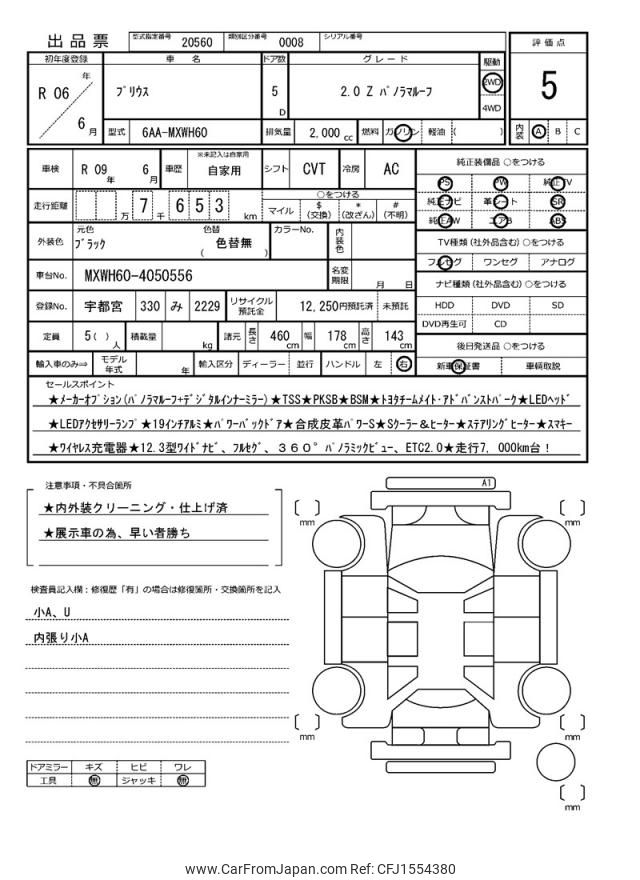 出品票
型式指定番号 20560 類別区分番号 0008 シリアル番号
初年度登録 車名 ドア数 グレード 駆動 評価点
R 06 年 6 月
プリウス 5 D 2.0 Z パノラマルーフ 2WD 4WD 5
型式 6AA-MXWH60 排気量 2,000 cc 燃料 ガソリン 軽油 ( ) 内装 A B C
車検 R 09 年 6 月 車歴 ※未記入は自家用 自家用 シフト CVT 冷房 AC
純正装備品 ○をつける
PS PW 純正TV
純正ナビ 革シート SR
純正AW エアB ABS
走行距離 万 7 千 6 5 3 km ○をつける マイル $ (交換) * (改ざん) # (不明)
TV種類 (社外品含む) ○をつける
フルセグ ワンセグ アナログ
外装色 元色 ブラック 色替 ( 色替無 ) カラーNo. 内装色
車台No. MXWH60-4050556 名変期限 月 日
ナビ種類 (社外品含む) ○をつける
HDD DVD SD
DVD再生可 CD
登録No. 宇都宮 330 み 2229 リサイクル預託金 12,250円預託済 未預託
定員 5 ( ) 人 積載量 kg 諸元 長さ 460 cm 幅 178 cm 高さ 143 cm
後日発送品 ○をつける
新車保証書 車輌取説
輸入車のみ⇒ モデル年式 年 輸入区分 ディーラー 並行 ハンドル 左 右
セールスポイント
★メーカーオプション(パノラマルーフ+デジタルインナーミラー)★TSS★PKSB★BSM★トヨタチームメイト・アドバンストパーク★LEDヘッド
★LEDアクセサリーランプ★19インチアルミ★パワーバックドア★合成皮革パワーS★Sクーラー&ヒーター★ステアリングヒーター★スマキー
★ワイヤレス充電器★12.3型ワイドナビ、フルセグ、360°パノラミックビュー、ETC2.0★走行7,000km台!
注意事項・不具合箇所
★内外装クリーニング・仕上げ済
★展示車の為、早い者勝ち
検査員記入欄:修復歴「有」の場合は修復箇所・交換箇所を記入
小A、U
内張り小A
A1
mm
mm
mm
mm
mm
ドアミラー キズ ヒビ ワレ
工具 無 ジャッキ 無
www.CarFromJapan.com Ref: CFJ1554380